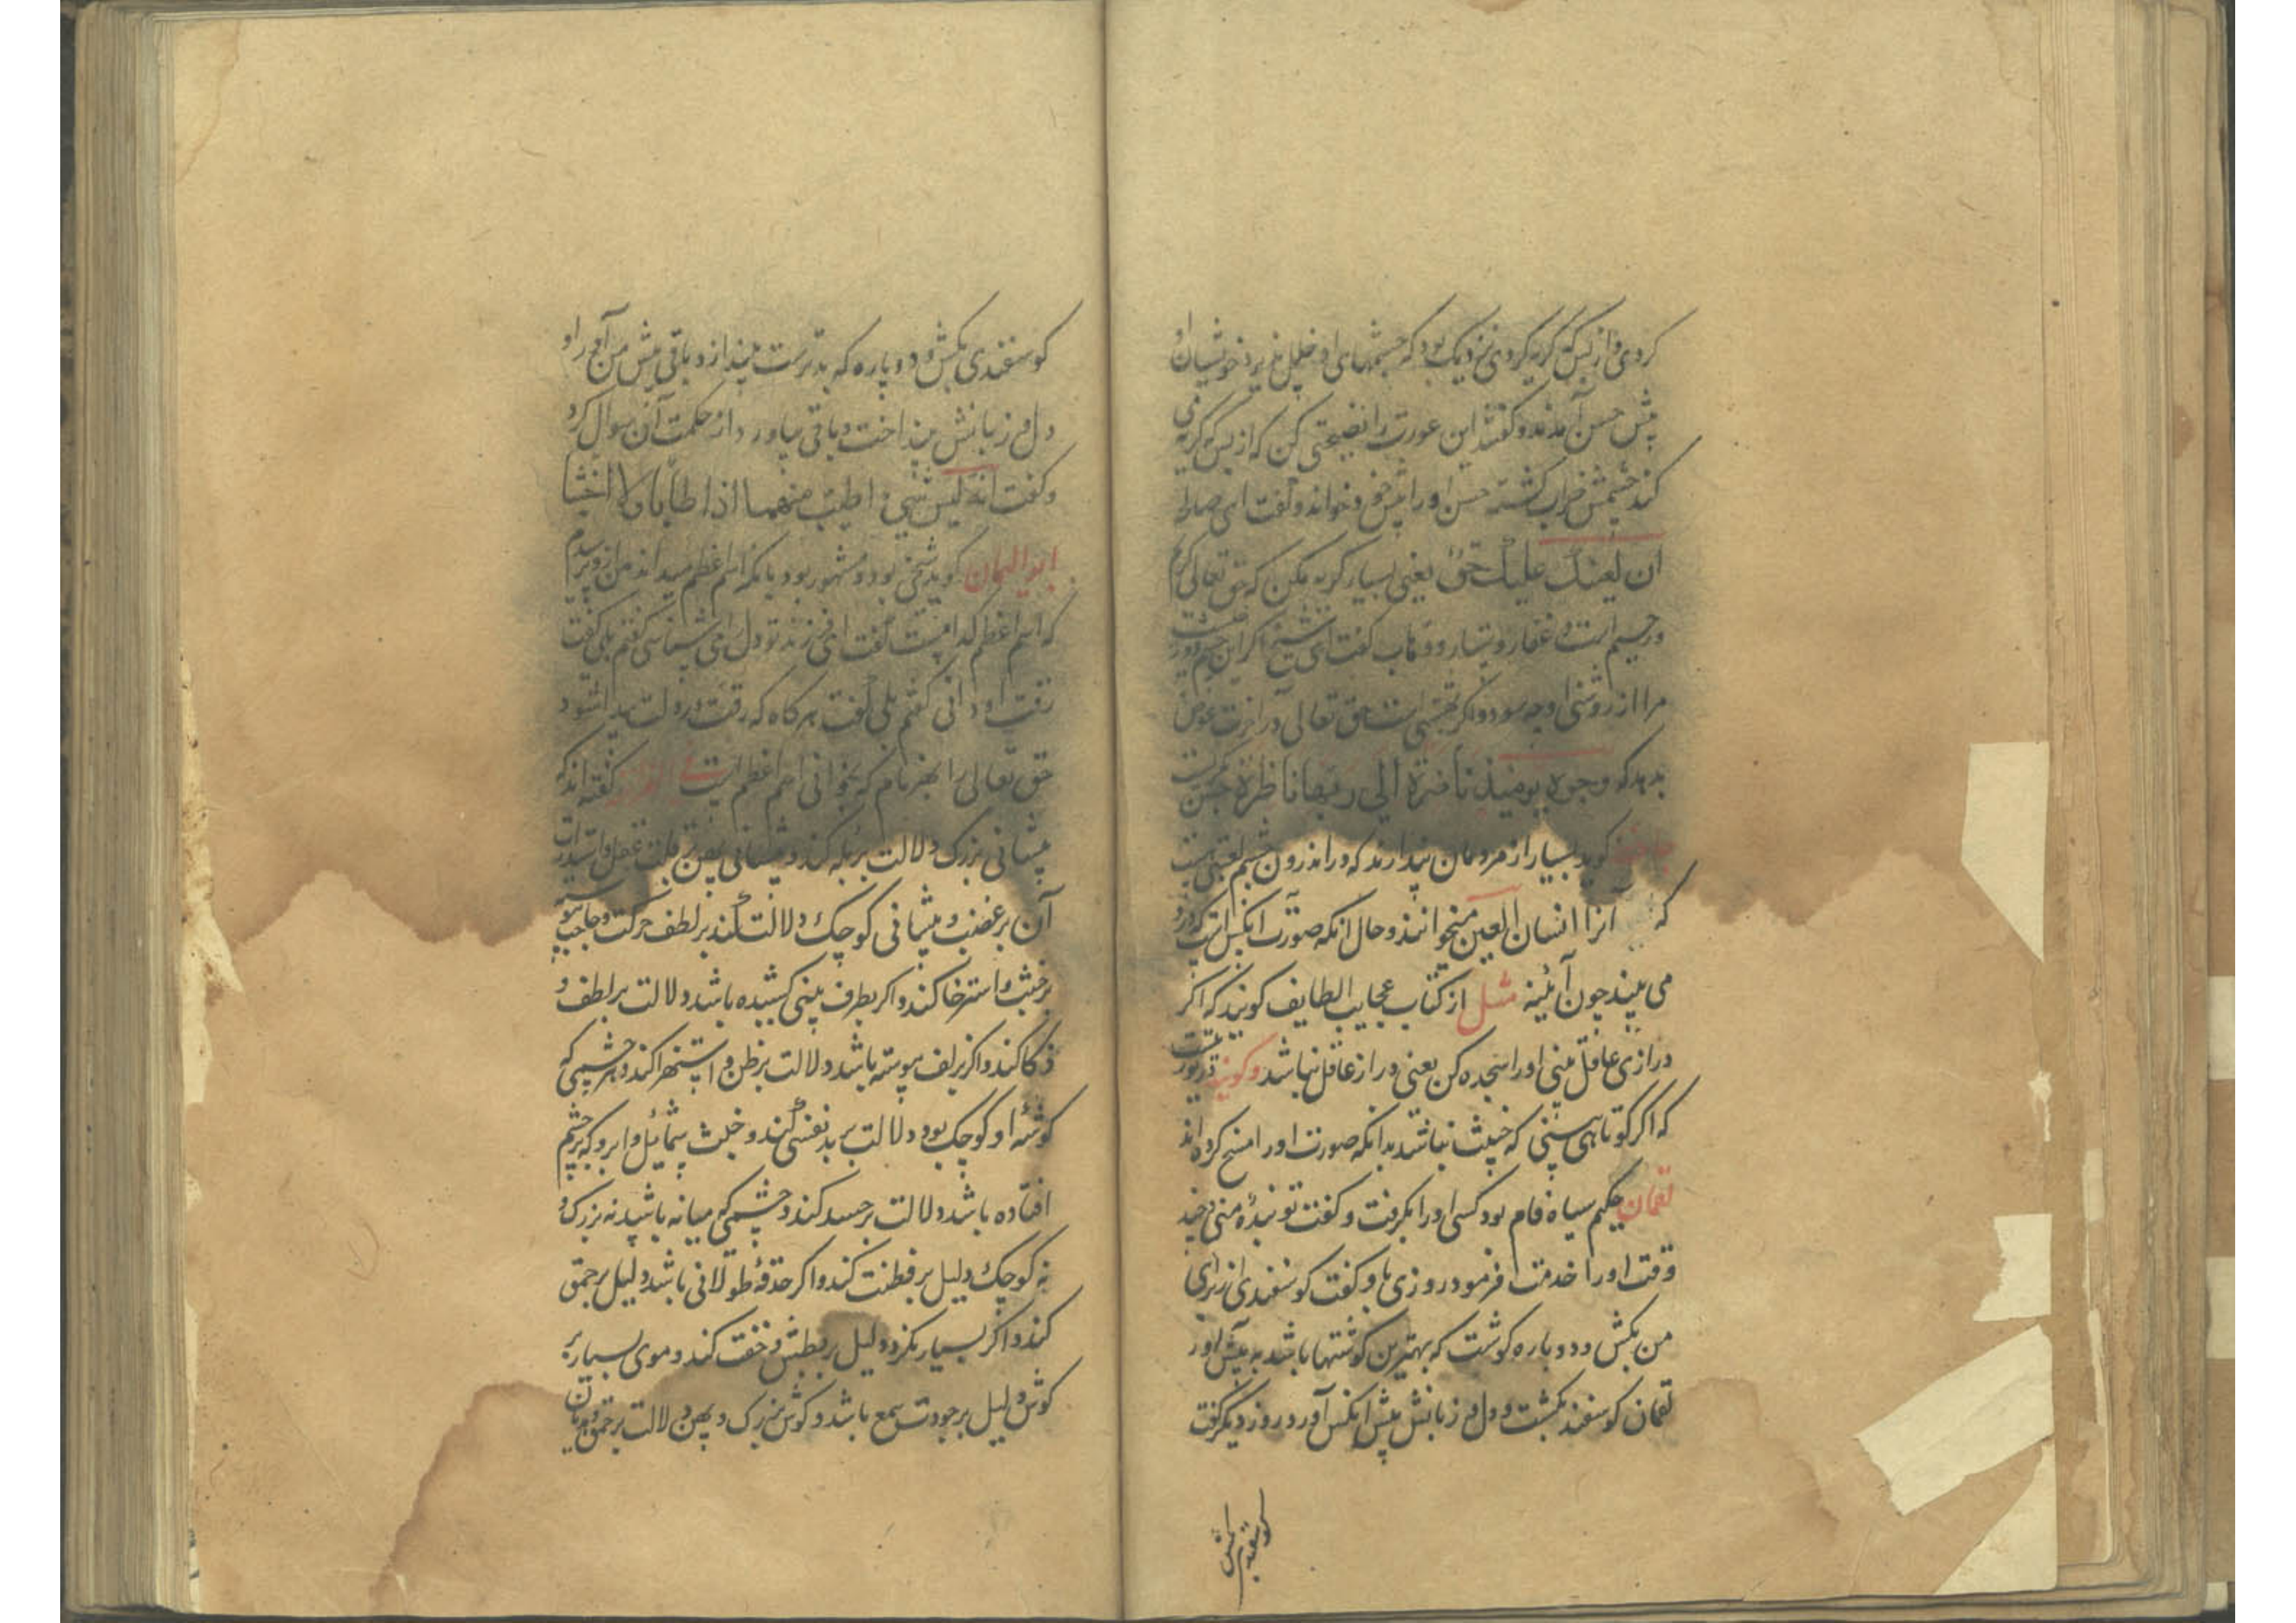 کردی و از بس که گریه کردی نزدیک بود که چشمهای او خلل پذیرد خویشان او
پیش حسن آمدند و گفتند این عورت را نصیحتی کن که از بس که گریه می
کند چشمش خراب گشته حسن او را پیش خود خواند و گفت ای صالحه
ان لعینک علیک حق یعنی بسیار گریه مکن که حق تعالی کریم
و رحیم است و غفار و ستار و وهاب گفت ای شیخ اگر این چشم دوزخیست
مرا از روشنی او چه سود و اگر بهشتی است حق تعالی در آخرت عوض
بدهد که وجوه یومئذ ناضرة الی ربها ناظرة حسن بگریست
جاحظ گوید بسیار از مردمان پندارند که در اندرون چشم لعبتی است
که آنرا انسان العین میخوانند و حال آنکه صورت آنکس است که درو
می بیند چون آئینه مثل از کتاب عجایب الطایف گویند که اگر
درازی عاقل بینی او را سجده کن یعنی دراز عاقل نباشد و گویند در توریت
که اگر کوتاهی بینی که خبیث نباشد بدانکه صورت او را مسخ کرده اند
لقمان حکیم سیاه فام بود کسی او را بگرفت و گفت تو بندهٔ منی چند
وقت او را خدمت فرمود روزی با او گفت کوسفندی از برای
من بکش و دو پاره کوشت که بهترین کوشتها باشد به پیش آور
لقمان کوسفند بکشت و دل و زبانش پیش آنکس آورد روز دیگر گفت
کوسفندی بکش
کوسفندی بکش و دو پاره که بدترست بینداز و باقی پیش من آور او
دل و زبانش بینداخت و باقی بیاورد از حکمت آن سوال کرد
و گفت انه لیس شیء اطیب منهما اذا طابا ولا اخبثا
ابو الیمان گوید شخصی بود و مشهور بود بانکه اسم اعظم میداند من ازو پرسیدم
که اسم اعظم کدامست گفت ای فرزند تو دل را می شناسی گفتم بلی گفت
رقت او دانی گفتم بلی گفت هرگاه که رقت در دلت پیدا شود
حق تعالی را بهر نام که بخوانی اسم اعظم است گفته اند که
پیشانی بزرگ دلالت بر بله کند و پیشانی پهن بر قلت عقل و استدارت
آن بر غضب و پیشانی کوچک دلالت کند بر لطف حرکت و حاجب پیوسته
بر خبث و استرخا کند و اگر بطرف بینی کشیده باشد دلالت بر لطف و
ذکا کند و اگر بزلف پیوسته باشد دلالت بر ظن و استهزا کند و هر چشمی که
گوشهٔ او کوچک بود دلالت بر بدنفسی کند و خبث شمایل و ابرو که بر چشم
افتاده باشد دلالت بر حسد کند و چشمی که میانه باشد نه بزرگ و
نه کوچک دلیل بر فطنت کند و اگر حدقهٔ طولانی باشد دلیل بر حمق
کند و اگر بسیار نگرد دلیل بر طیش و خفت کند و موی بسیار بر
گوش دلیل بر جودت سمع باشد و گوش بزرگ و پهن دلالت بر حمق و هذیان